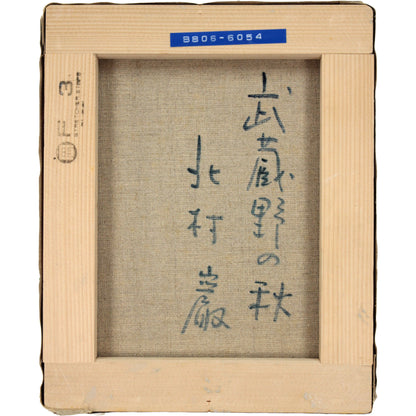 BB06-6054
F 3
武蔵野の秋
北村 巌